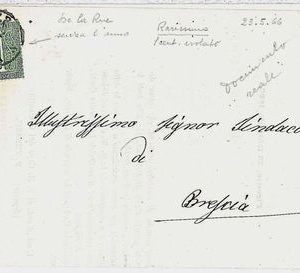 De La Rue
senza l'anno
Rarissimo
1 cent. isolato
23.5.66
Documento
reale
Illustrissimo Signor Sindaco
di
Brescia